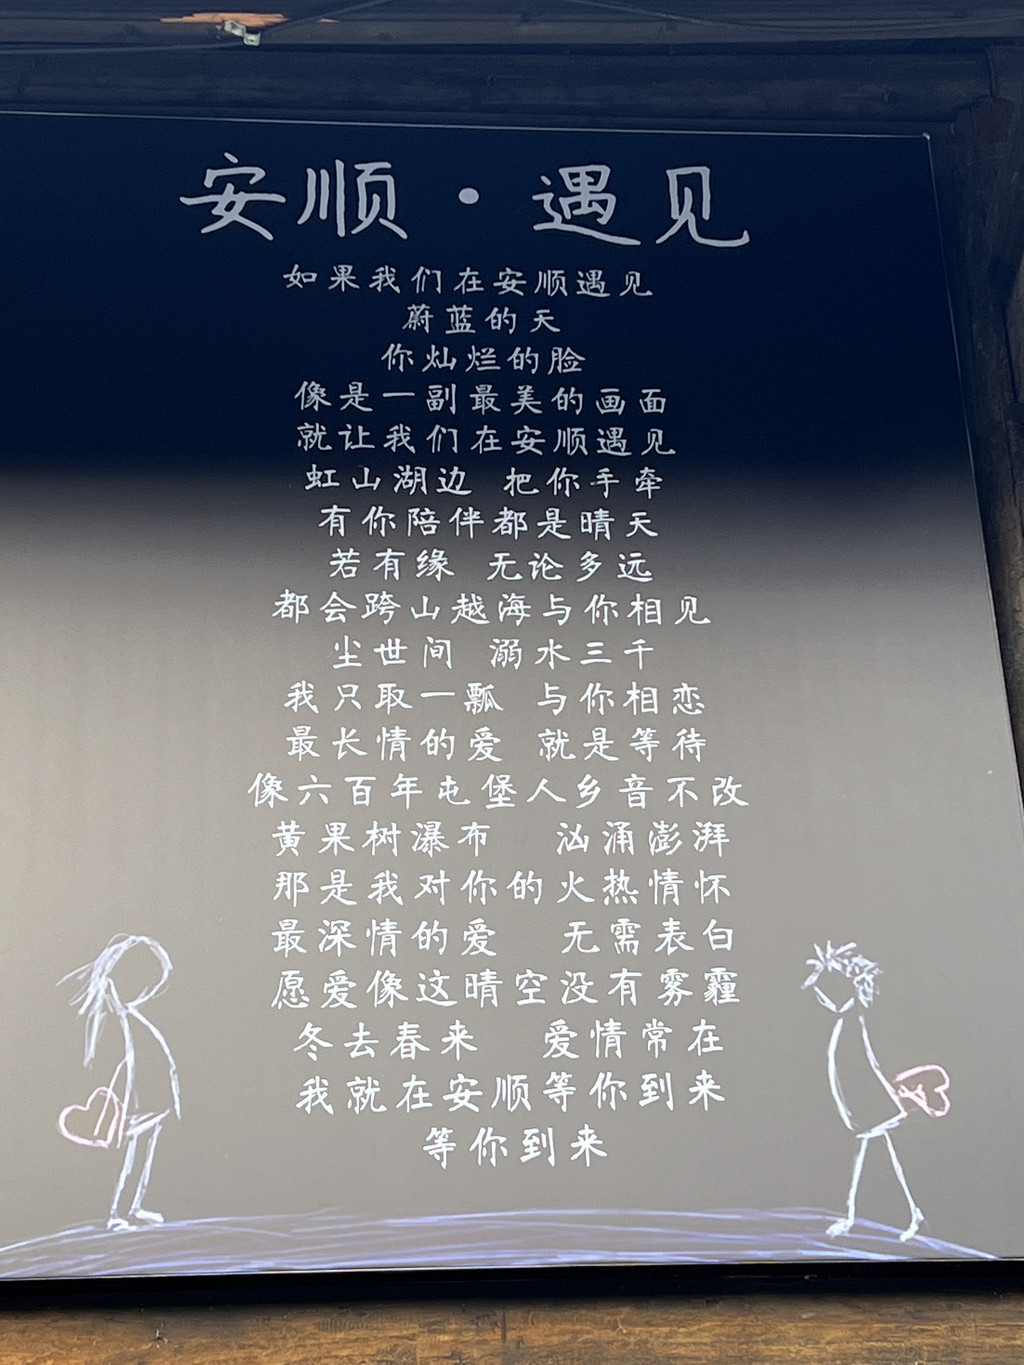 安顺·遇见
如果我们在安顺遇见
蔚蓝的天
你灿烂的脸
像是一副最美的画面
就让我们在安顺遇见
虹山湖边 把你手牵
有你陪伴都是晴天
若有缘 无论多远
都会跨山越海与你相见
尘世间 溺水三千
我只取一瓢 与你相恋
最长情的爱 就是等待
像六百年屯堡人乡音不改
黄果树瀑布 汹涌澎湃
那是我对你的火热情怀
最深情的爱 无需表白
愿爱像这晴空没有雾霾
冬去春来 爱情常在
我就在安顺等你到来
等你到来